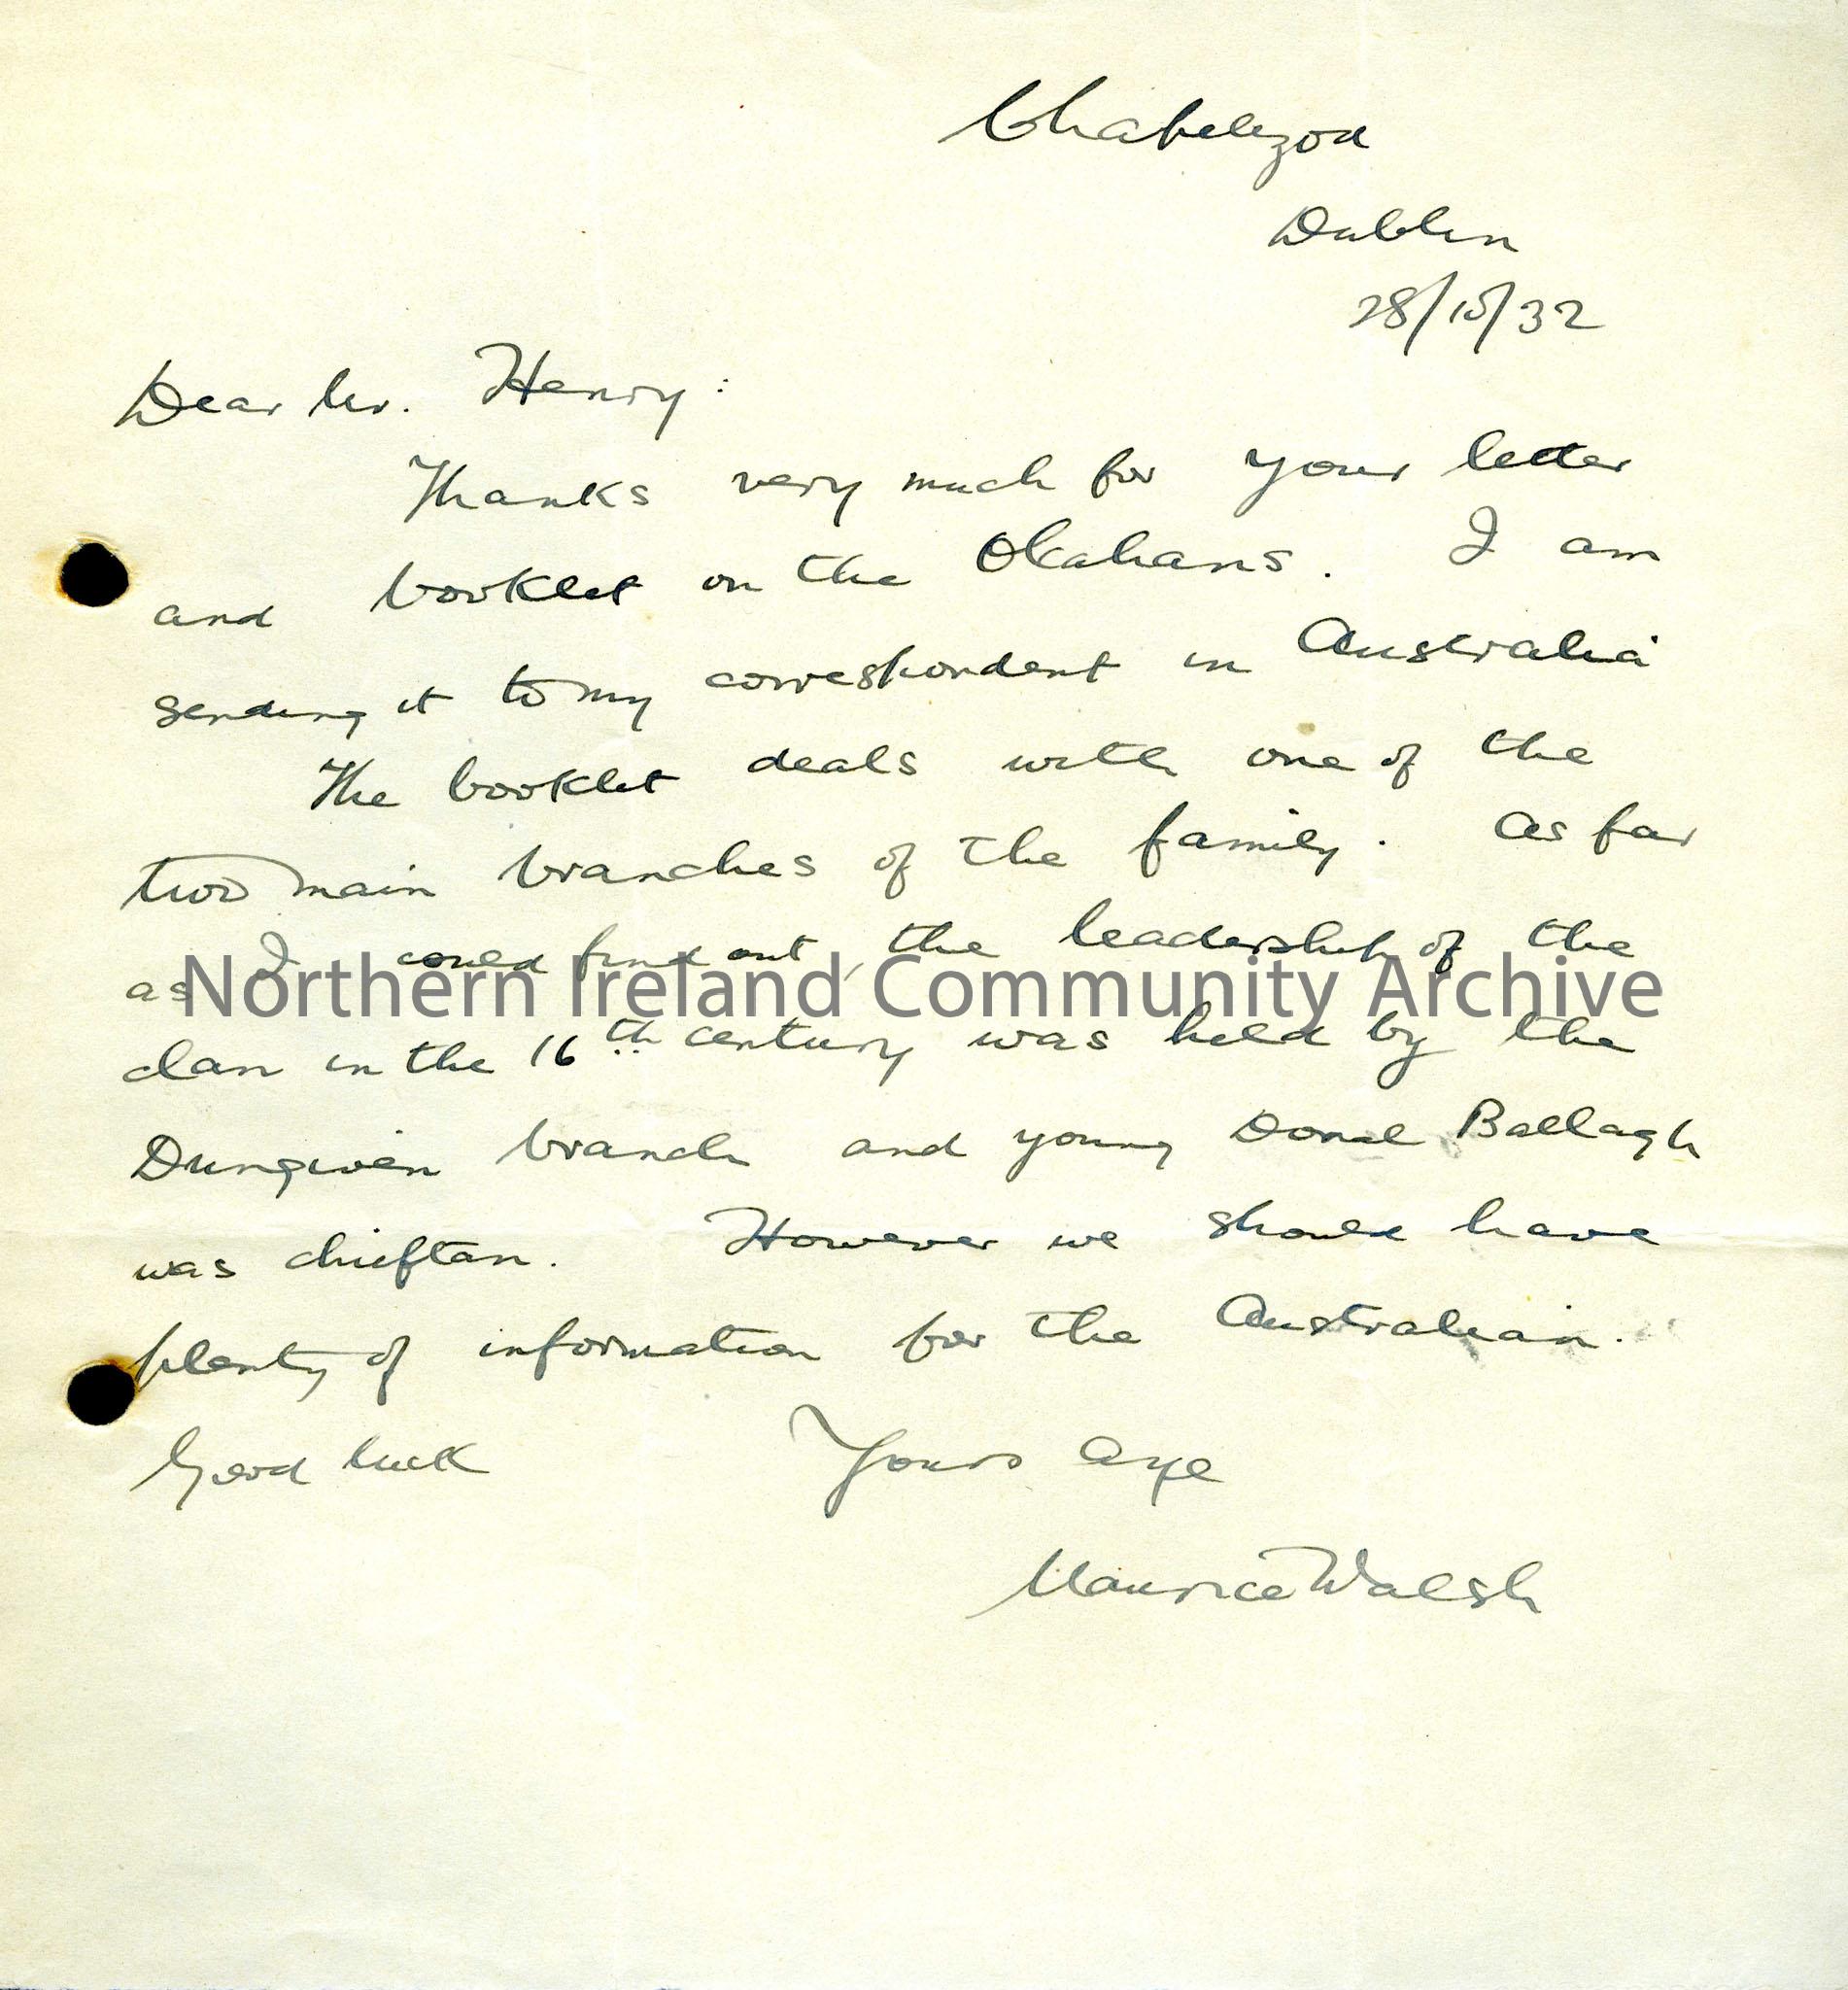 Chapelizod
Dublin
28/10/32
Dear Mr. Henry:
Thanks very much for your letter
and booklet on the OKahans. I am
sending it to my correspondent in Australia
The booklet deals with one of the
two main branches of the family. As far
as I could find out, the leadership of the
Northern Ireland Community Archive
clan in the 16th century was held by the
Dungiven branch and young Donal Ballagh
was chieftan. However we should have
plenty of information for the Australian.
Good luck Yours aye
Maurice Walsh